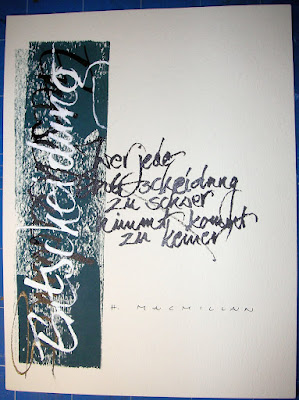 Entscheidung
Wer jede
Entscheidung
zu schwer
nimmt kommt
zu keiner
H. MACMILLAN